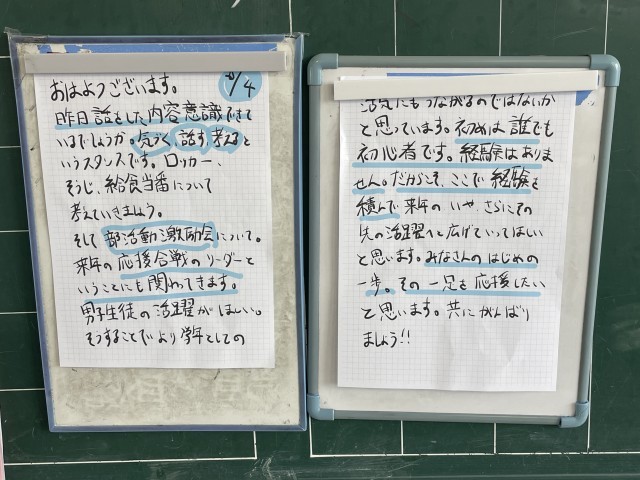 おはようございます。 6/4
昨日話をした内容意識できて
いるでしょうか。気づく、話す、考えると
いうスタンスです。ロッカー、
そうじ、給食当番について
考えていきましょう。
そして部活動激励会について。
来年の応援合戦のリーダーと
いうことにも関わってきます。
男子生徒の活躍がほしい。
そうすることでより学年としての
活気にもつながるのではないか
と思っています。初めは誰でも
初心者です。経験はありま
せん。だからこそ、ここで経験を
積んで来年の、いや、さらにその
先の活躍へと広げていってほしい
と思います。みなさんのはじめの
一歩。その一足を応援したい
と思います。共にがんばり
ましょう!!